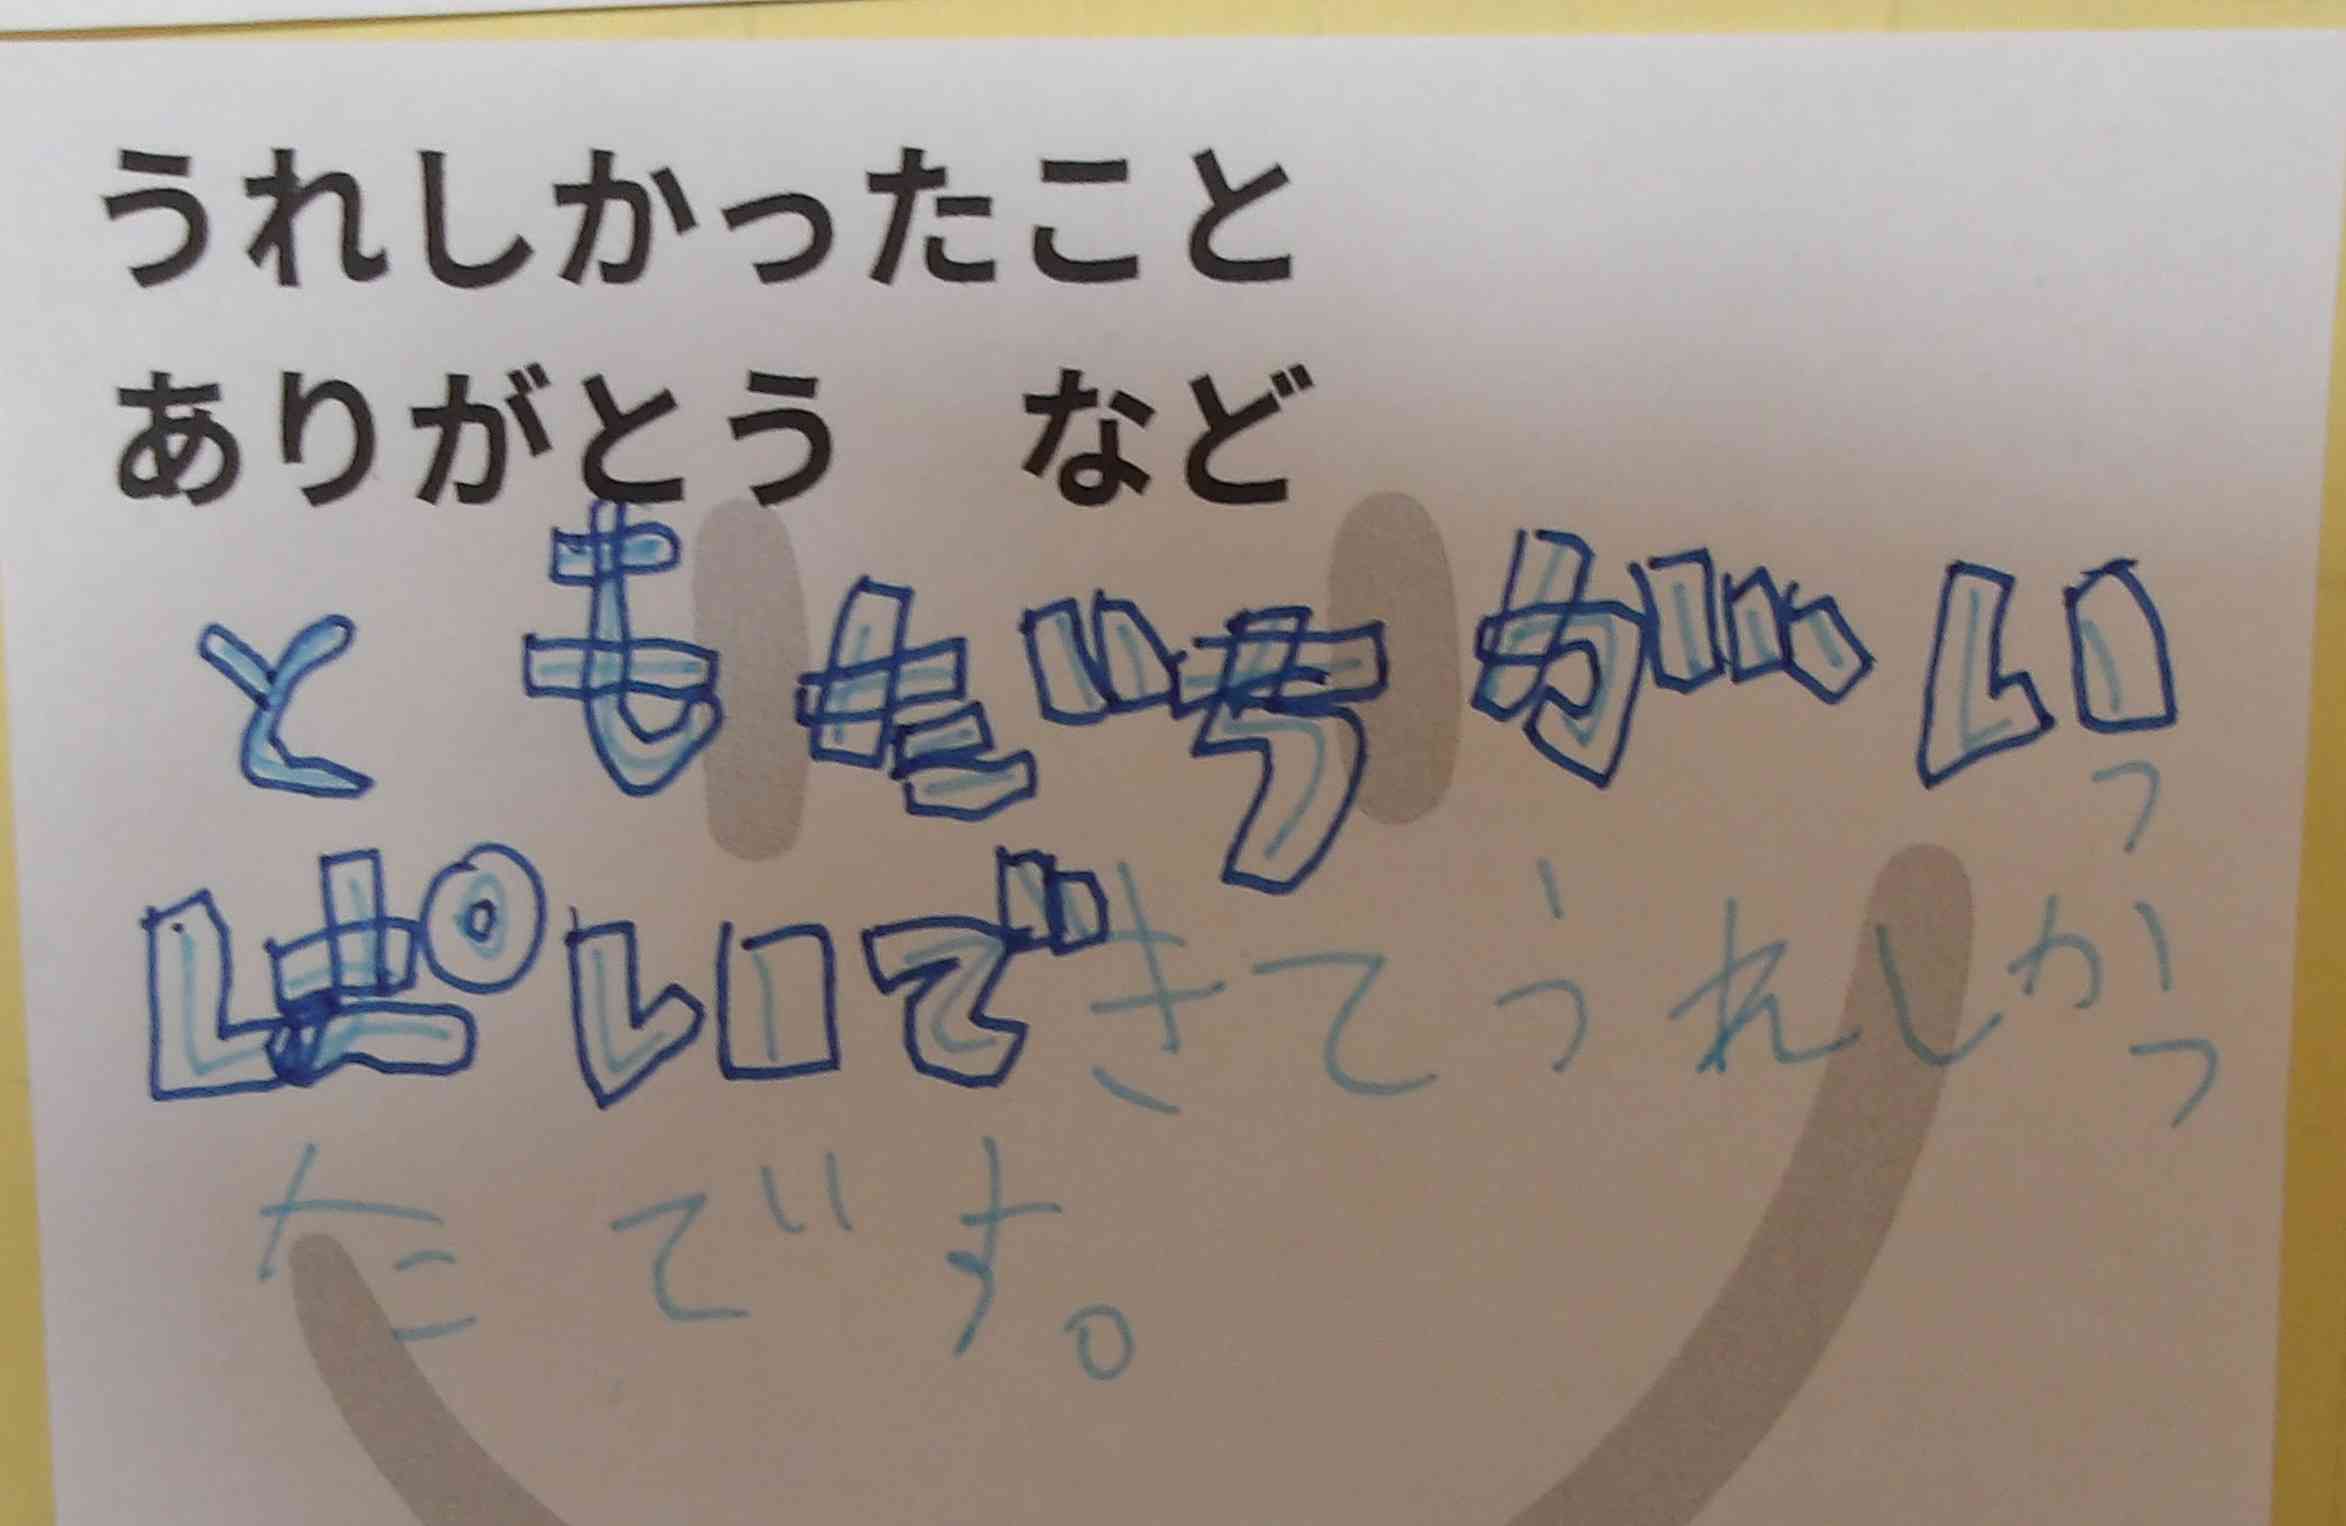 うれしかったこと
ありがとう　など
ともだちがいいっ
ぱいできてうれしかっ
たです。